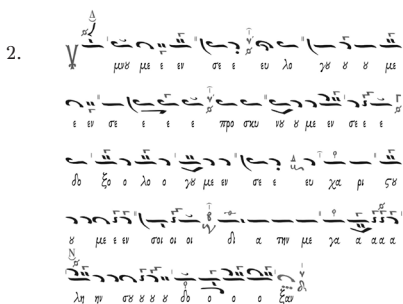 2.
μνυ με ε εν σε ε ευ λο γυ υ υ με
ε εν σε ε ε ε προ σκυ νυ υ με εν σε ε ε
δο ξο ο λο ο γυ με εν σε ε ευ χα ρι ϛυ
υ με ε εν σοι οι οι δι α την με γα α α α α
λη ην συ υ υ υ δο ο ο ο ξαν